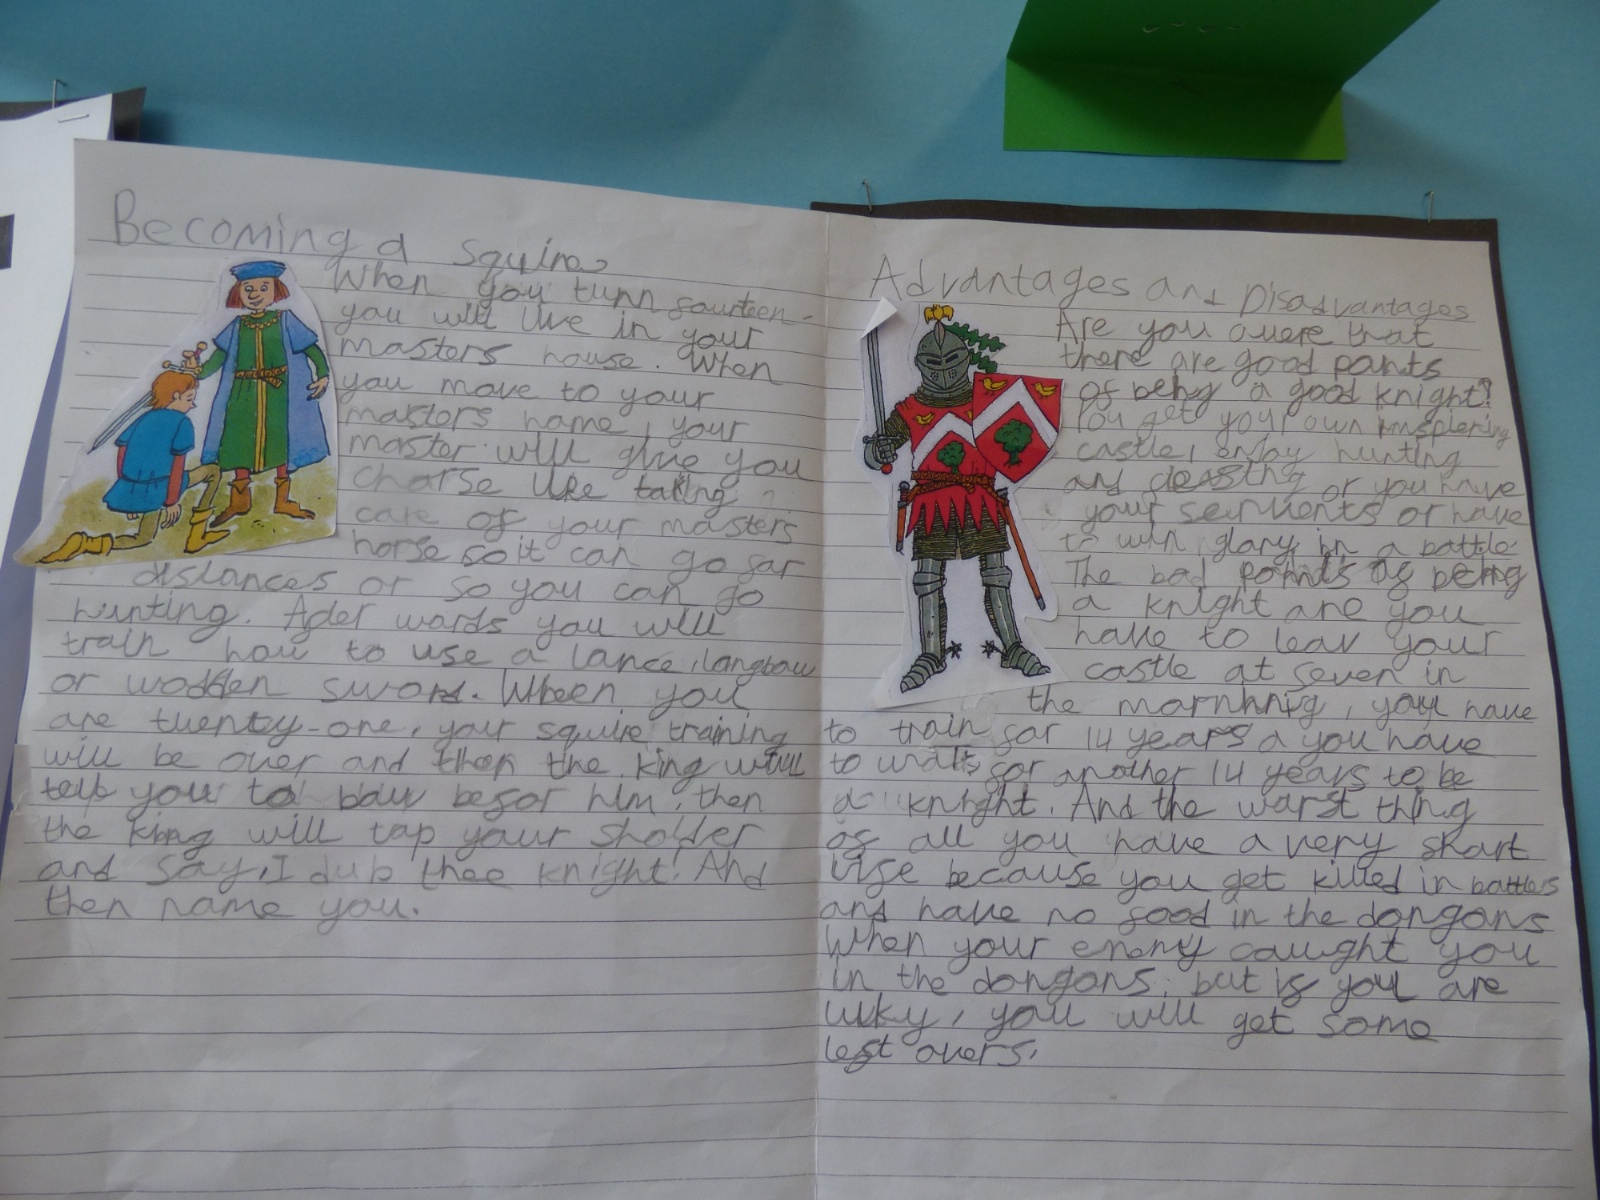 Becoming a Squire
When you turn fourteen
you will live in your
masters house. When
you move to your
masters home, your
master will give you
charse like taking
care of your masters
horse so it can go far
distances or so you can go
hunting. After wards you will
train how to use a lance, longbow
or wooden sword. When you
are twenty-one, your squire training
will be over and then the king will
tell you to bow befor him, then
the king will tap your sholder
and say, I dub thee knight! And
then name you.
Advantages and Disadvantages
Are you awere that
there are good points
of being a good knight?
You get your own
castle, enjoy hunting
and or you have
your servents or have
to win glory in a battle
The bad points of being
a knight are you
have to leav your
castle at seven in
the morning, you have
to train for 14 years a you have
to wait for another 14 years to be
a knight. And the worst thing
of all you have a very short
life because you get killed in battles
and have no food in the dongons
When your enemy caught you
in the dongons, but if you are
luky, you will get some
left overs.